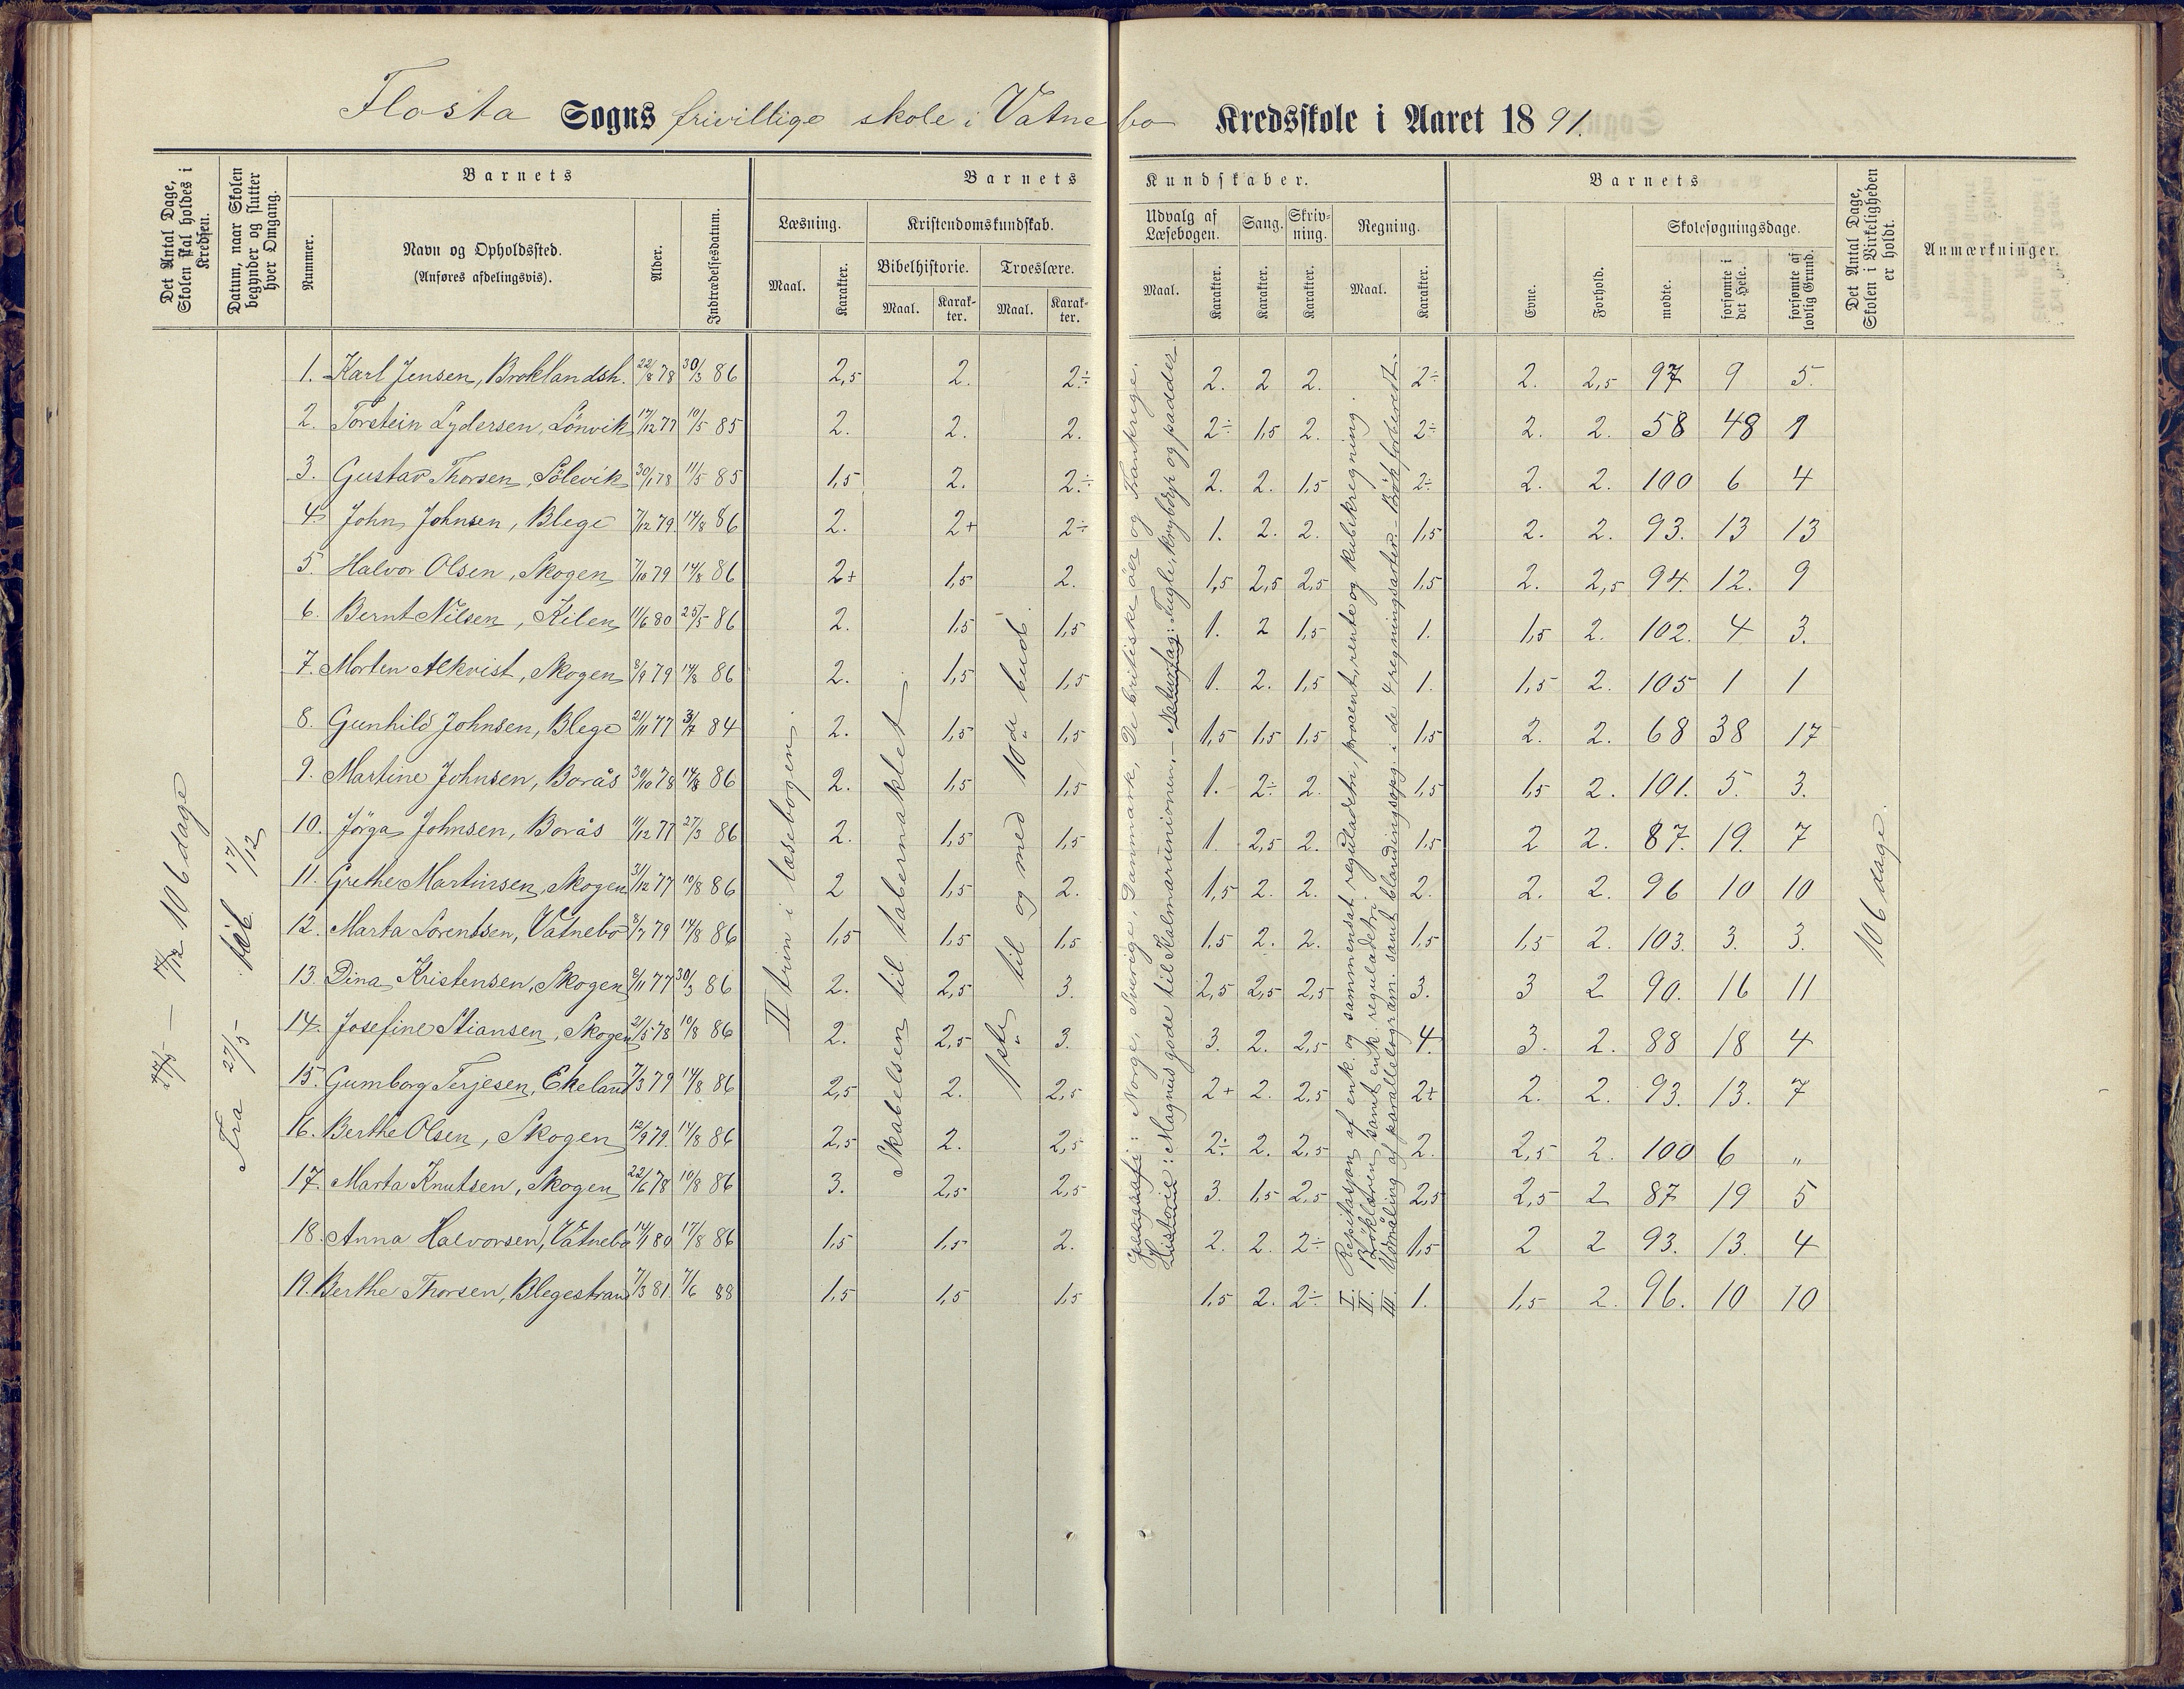 Flosta Sogns frivillige skole i Vatnebo Kredsskole i Aaret 1891.
Det Antal Dage, Skolen skal holdes i Kredsen.
Datum, naar Skolen begynder og slutter hver Omgang.
Barnets
Nummer.
Navn og Opholdssted.
(Anføres afdelingsvis).
Alder.
Indtrædelsesdatum.
Barnets Kundskaber.
Læsning.
Maal.
Karakter.
Kristendomskundskab.
Bibelhistorie.
Maal.
Karakter.
Troeslære.
Maal.
Karakter.
Udvalg af Læsebogen.
Maal.
Karakter.
Sang.
Karakter.
Skrivning.
Karakter.
Regning.
Maal.
Karakter.
Barnets
Evne.
Forhold.
Skolesøgningsdage.
mødte.
forsømte i det Hele.
forsømte af lovlig Grund.
Det Antal Dage, Skolen i Virkeligheden er holdt.
Anmærkninger.
27/5 — 17/12 106 dage
Fra 27/5 til 17/12
II trin i læsebogen.
Skabelsen til tabernaklet.
1ste til og med 10de bud.
Geografi: Norge, Sverige, Danmark, De britiske öer og Frankrige.
Historie: Magnus gode til Kalmarunionen. — Naturfag: Fugle, krybdyr og padder.
I. Repitasjon af enk. og sammensat reguladetri, procent, rente og kubikregning.
II. Bröklæren samt enk. reguladetri.
III. Udmåling af parallelogram. samt blandingsopg. i de 4 regningsarter. — Brök forberedt.
106 dage.
1. Karl Jensen, Broklandsh. 22/8 78 30/3 86 2,5 2. 2÷ 2. 2 2. 2÷ 2. 2,5 97 9 5.
2. Torstein Lydersen, Lönvik 17/12 77 10/5 85 2. 2. 2. 2÷ 1,5 2. 2÷ 2. 2. 58 48 1
3. Gustav Thorsen, Sölevik 30/1 78 11/5 85 1,5 2. 2.÷ 2. 2. 1,5 2÷ 2. 2. 100 6 4
4. John Johnsen, Blege 7/12 79. 14/8 86 2. 2+ 2÷ 1. 2. 2. 1,5 2. 2. 93. 13 13
5. Halvor Olsen, Skogen 7/10 79 14/8 86 2+ 1,5 2. 1,5 2,5 2,5 1,5 2. 2,5 94. 12. 9
6. Bernt Nilsen, Kilen 11/6 80 25/5 86 2. 1,5 1,5 1. 2 1,5 1. 1,5 2. 102. 4 3.
7. Morten Alkvist, Skogen 8/9 79 14/8 86 2. 1,5 1,5 1. 2. 1,5 1. 1,5 2. 105 1 1
8. Gunhild Johnsen, Blege 21/11 77 3/7 84 2. 1,5 1,5 1,5 1,5 1,5 1,5 2. 2. 68 38 17
9. Martine Johnsen, Borås 30/10 78 14/8 86 2. 1,5 1,5 1. 2÷ 2. 1,5 1,5 2. 101. 5. 3.
10. Jörga Johnsen, Borås 11/12 77 27/3 86 2. 1,5 1,5 1. 2,5 2. 1,5 2 2. 87. 19. 7
11. Grethe Martinsen, Skogen 31/12 77 10/8 86 2 1,5 2. 1,5 2. 2. 2. 2. 2. 96 10 10
12. Marta Lorentsen, Vatnebo 8/7 79 14/8 86 1,5 1,5 1,5 1,5 2. 2. 1,5 1,5 2. 103. 3. 3.
13. Dina Kristensen, Skogen 8/11 77 30/3 86 2. 2,5 3. 2,5 2,5 2,5 3. 3 2 90. 16 11
14. Josefine Stiansen, Skogen 21/5 78 10/8 86 2. 2,5 3. 3. 2. 2,5 4. 3. 2. 88 18 4
15. Gumborg Terjesen, Ekeland 7/3 79 14/8 86 2,5 2. 2,5 2+ 2. 2,5 2+ 2. 2. 93. 13. 7
16. Berthe Olsen, Skogen 12/9 79. 14/8 86 2,5 2. 2,5 2÷ 2. 2,5 2. 2,5 2. 100 6 „
17. Marta Knutsen, Skogen 22/6 78 10/8 86 3. 2,5 2,5 3. 1,5 2,5 2,5 2,5 2 87 19 5
18. Anna Halvorsen, Vatnebo 14/1 80 17/8 86 1,5 1,5 2. 2. 2. 2÷ 1,5 2 2 93. 13. 4
19. Berthe Thorsen, Blegestrand 7/3 81. 7/6 88 1,5 1,5 1,5 1,5 2. 2÷ 1. 1,5 2. 96. 10 10